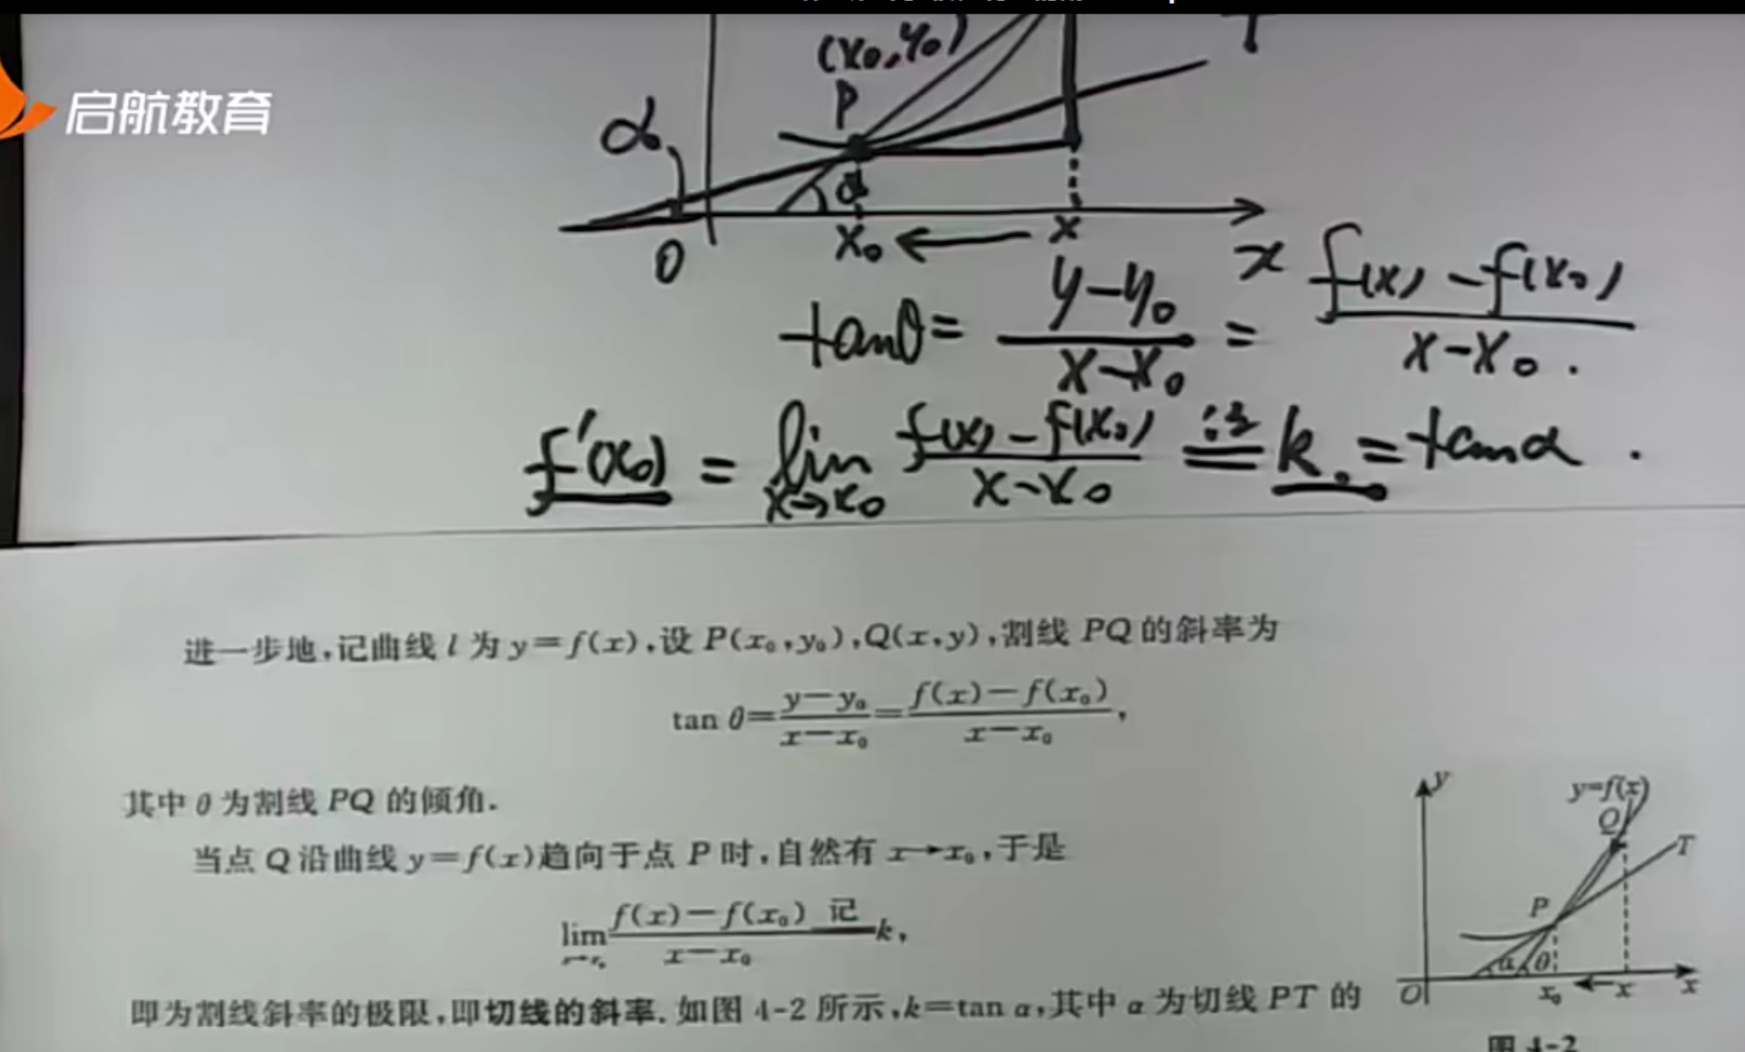 启航教育
(x₀,y₀)
P
α
α
0
x₀ ← x
x
tanθ = (y-y₀)/(x-x₀) = (f(x)-f(x₀))/(x-x₀).
f'(x₀) = lim x→x₀ (f(x)-f(x₀))/(x-x₀) 记= k. = tanα.
进一步地,记曲线 l 为 y=f(x),设 P(x₀,y₀),Q(x,y),割线 PQ 的斜率为
tan θ=(y-y₀)/(x-x₀)=(f(x)-f(x₀))/(x-x₀),
其中 θ 为割线 PQ 的倾角.
当点 Q 沿曲线 y=f(x)趋向于点 P 时,自然有 x→x₀,于是
lim x→x₀ (f(x)-f(x₀))/(x-x₀) 记= k,
即为割线斜率的极限,即切线的斜率.如图 4-2 所示,k=tan α,其中 α 为切线 PT 的
y
y=f(x)
Q
T
P
α θ
O x₀ ← x x
图 4-2